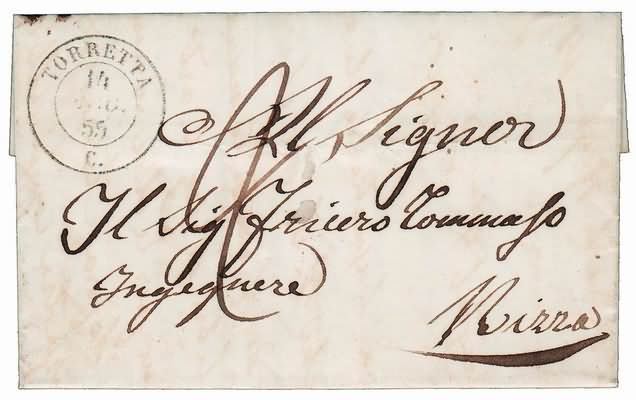 TORRETTA
14
55
C.
Al Signor
Il Sig Fricero Tommaso
Ingegnere
Nizza